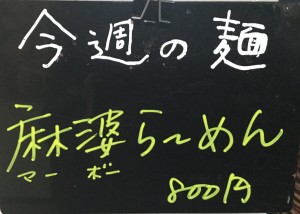 今週の麺
麻婆らーめん
マーボー
800円